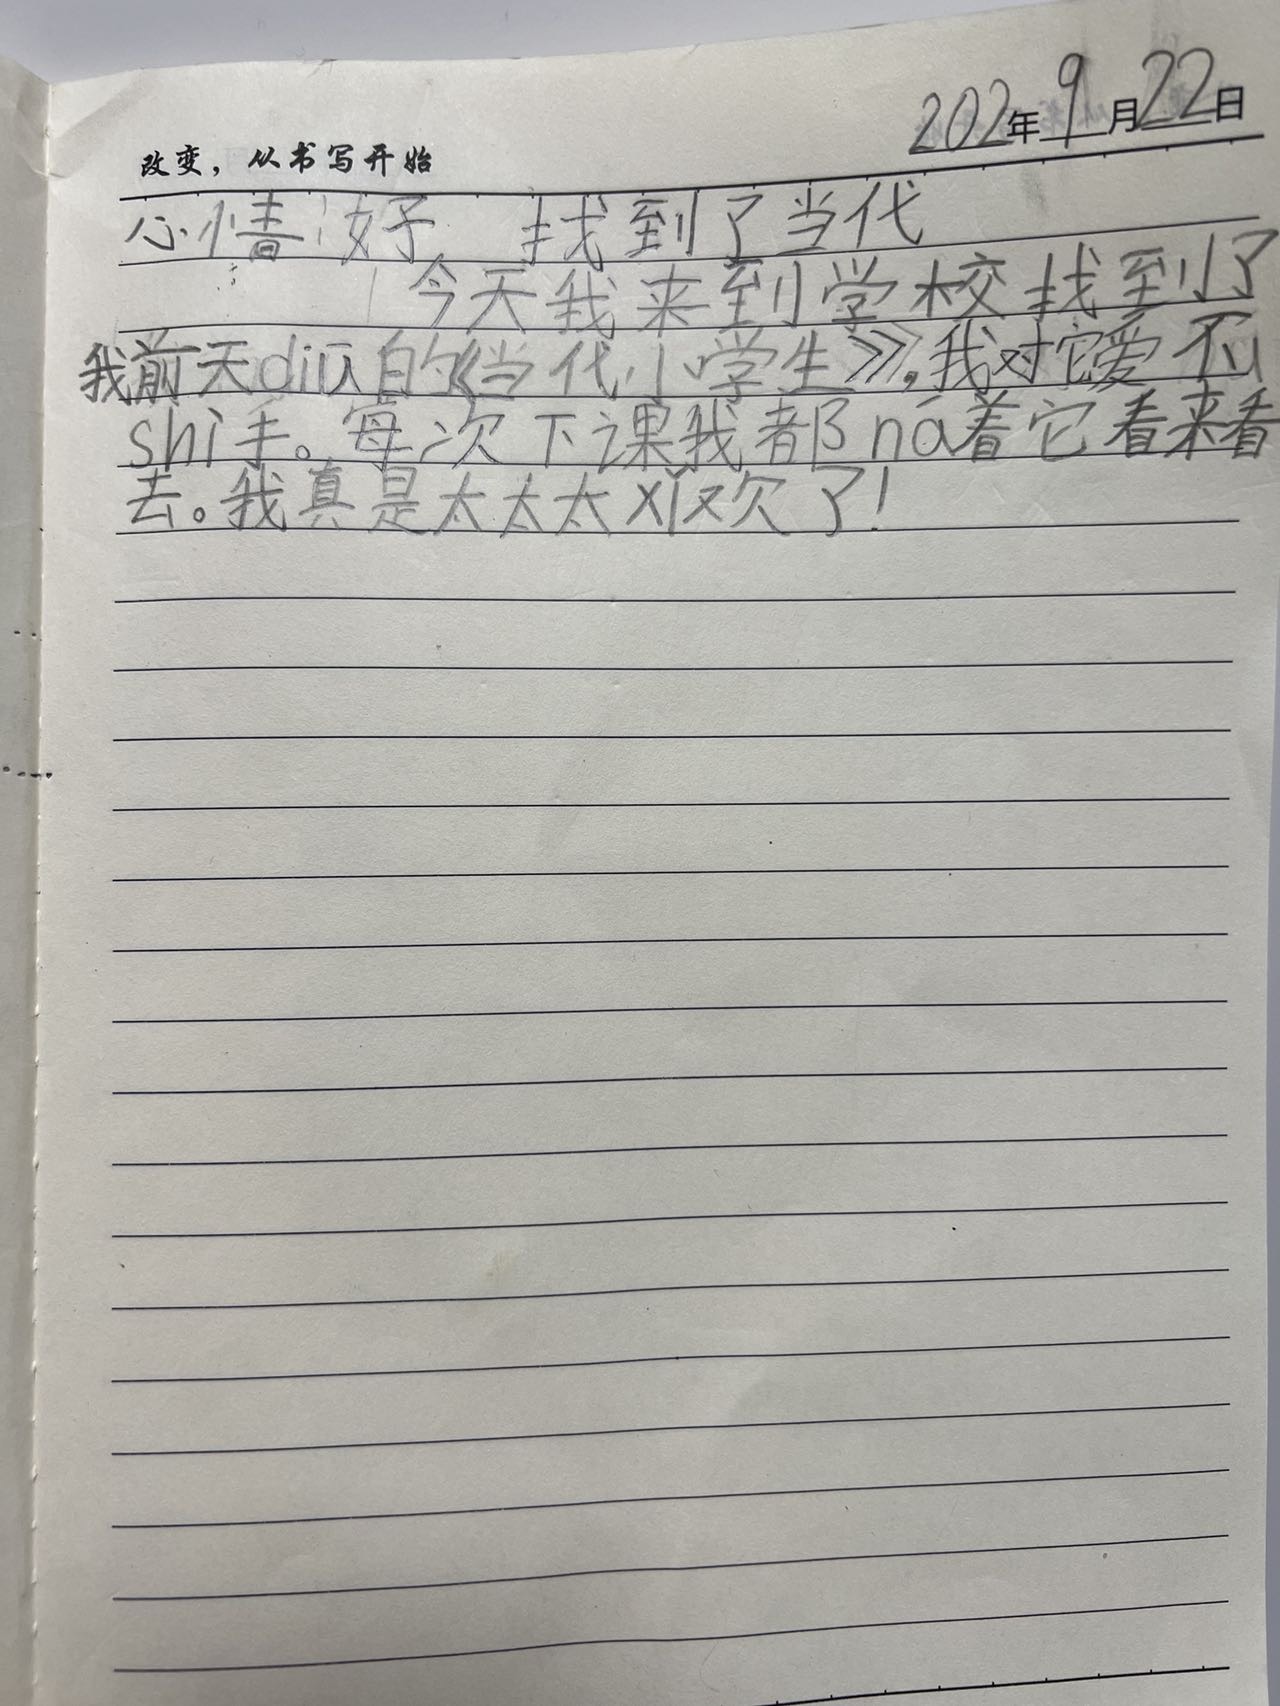 202年9月22日
改变，从书写开始
心情:好 找到了当代
今天我来到学校找到了
我前天diū的《当代小学生》,我对它爱不
shì手。每次下课我都ná着它看来看
去。我真是太太太xǐ欢了!